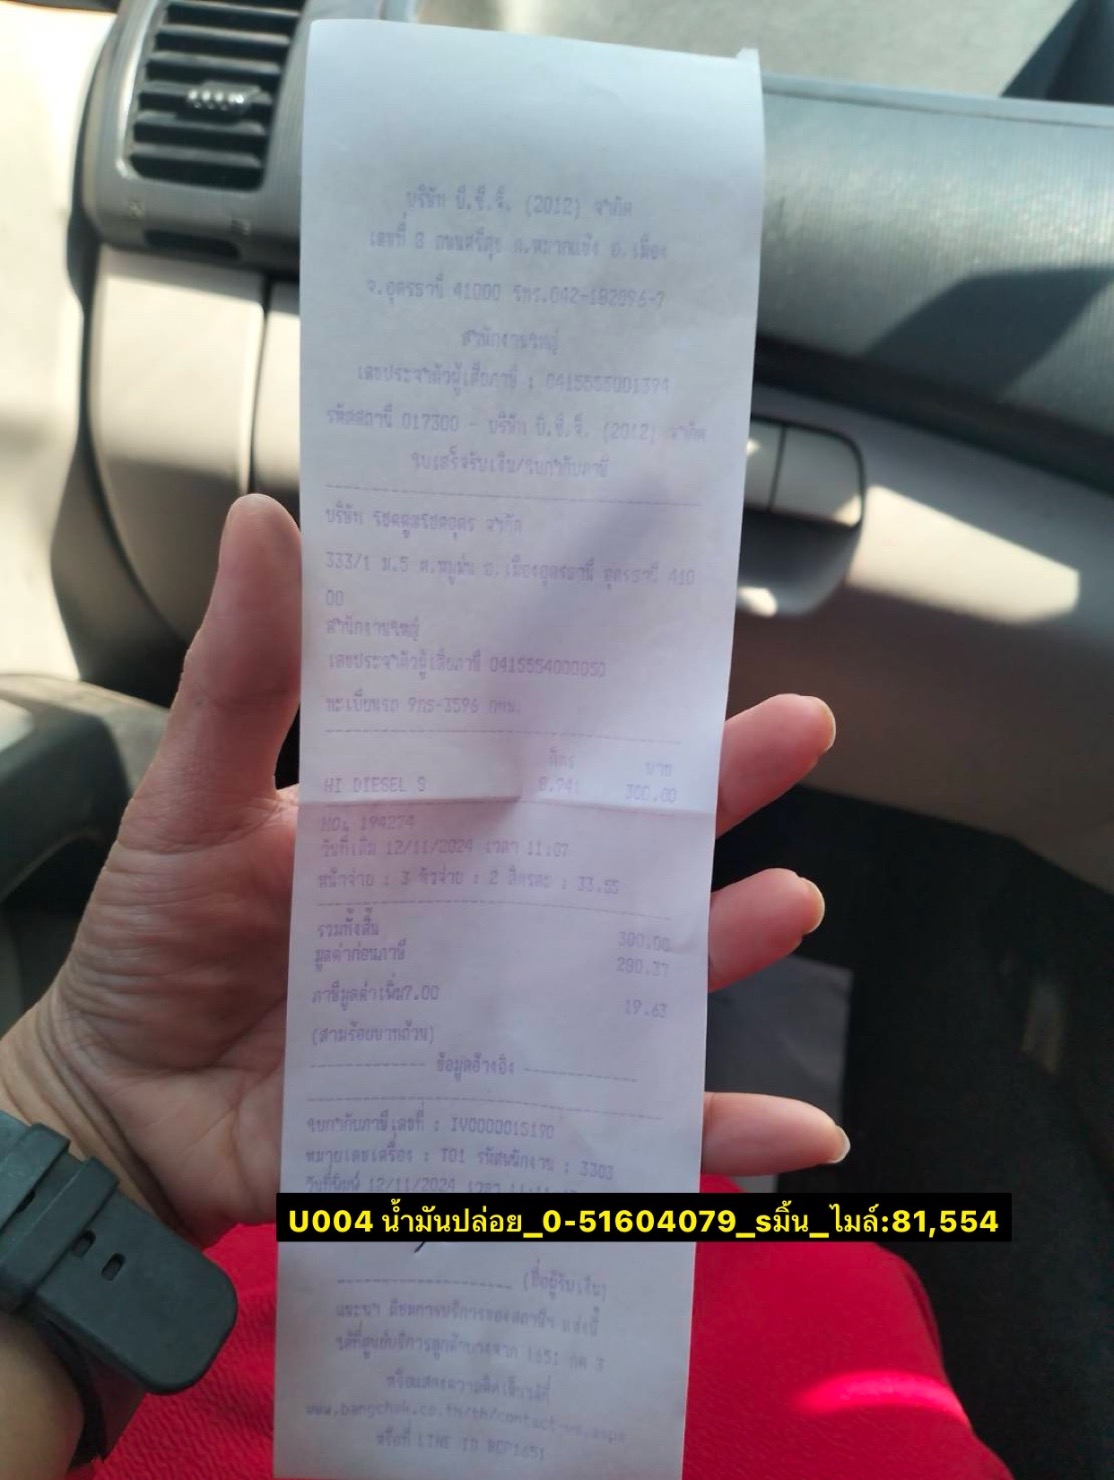 บริษัท บี.ซี.จี. (2012) จำกัด
เลขที่ 8 ถนนศรีสุข ต.หมากแข้ง อ.เมือง
จ.อุดรธานี 41000 โทร.042-182096-7
สำนักงานใหญ่
เลขประจำตัวผู้เสียภาษี : 0415555001394
รหัสสถานี 017300 - บริษัท บี.ซี.จี. (2012) จำกัด
ใบเสร็จรับเงิน/ใบกำกับภาษี
บริษัท โชคคูณโชคอุดร จำกัด
333/1 ม.5 ต.หมูม่น อ.เมืองอุดรธานี อุดรธานี 410
00
สำนักงานใหญ่
เลขประจำตัวผู้เสียภาษี 0415554000050
ทะเบียนรถ 9กร-3596 กทม.
ลิตร บาท
HI DIESEL S 8.941 300.00
NO. 194274
วันที่เติม 12/11/2024 เวลา 11:07
หน้าจ่าย : 3 หัวจ่าย : 2 ลิตรละ : 33.55
รวมทั้งสิ้น 300.00
มูลค่าก่อนภาษี 280.37
ภาษีมูลค่าเพิ่ม7.00 19.63
(สามร้อยบาทถ้วน)
ข้อมูลอ้างอิง
ใบกำกับภาษีเลขที่ : IV0000015190
หมายเลขเครื่อง : T01 รหัสพนักงาน : 3303
วันที่พิมพ์ 12/11/2024 เวลา
U004 น้ำมันปล่อย_0-51604079_sมิ้น_ไมล์:81,554
(ชื่อผู้รับเงิน)
แนะนำ ติชมการบริการของสถานีฯ แห่งนี้
ได้ที่ศูนย์บริการลูกค้าบางจาก 1651 กด 3
หรือแสดงความคิดเห็นได้ที่
www.bangchak.co.th/th/contact-
หรือที่ LINE ID BCP1651